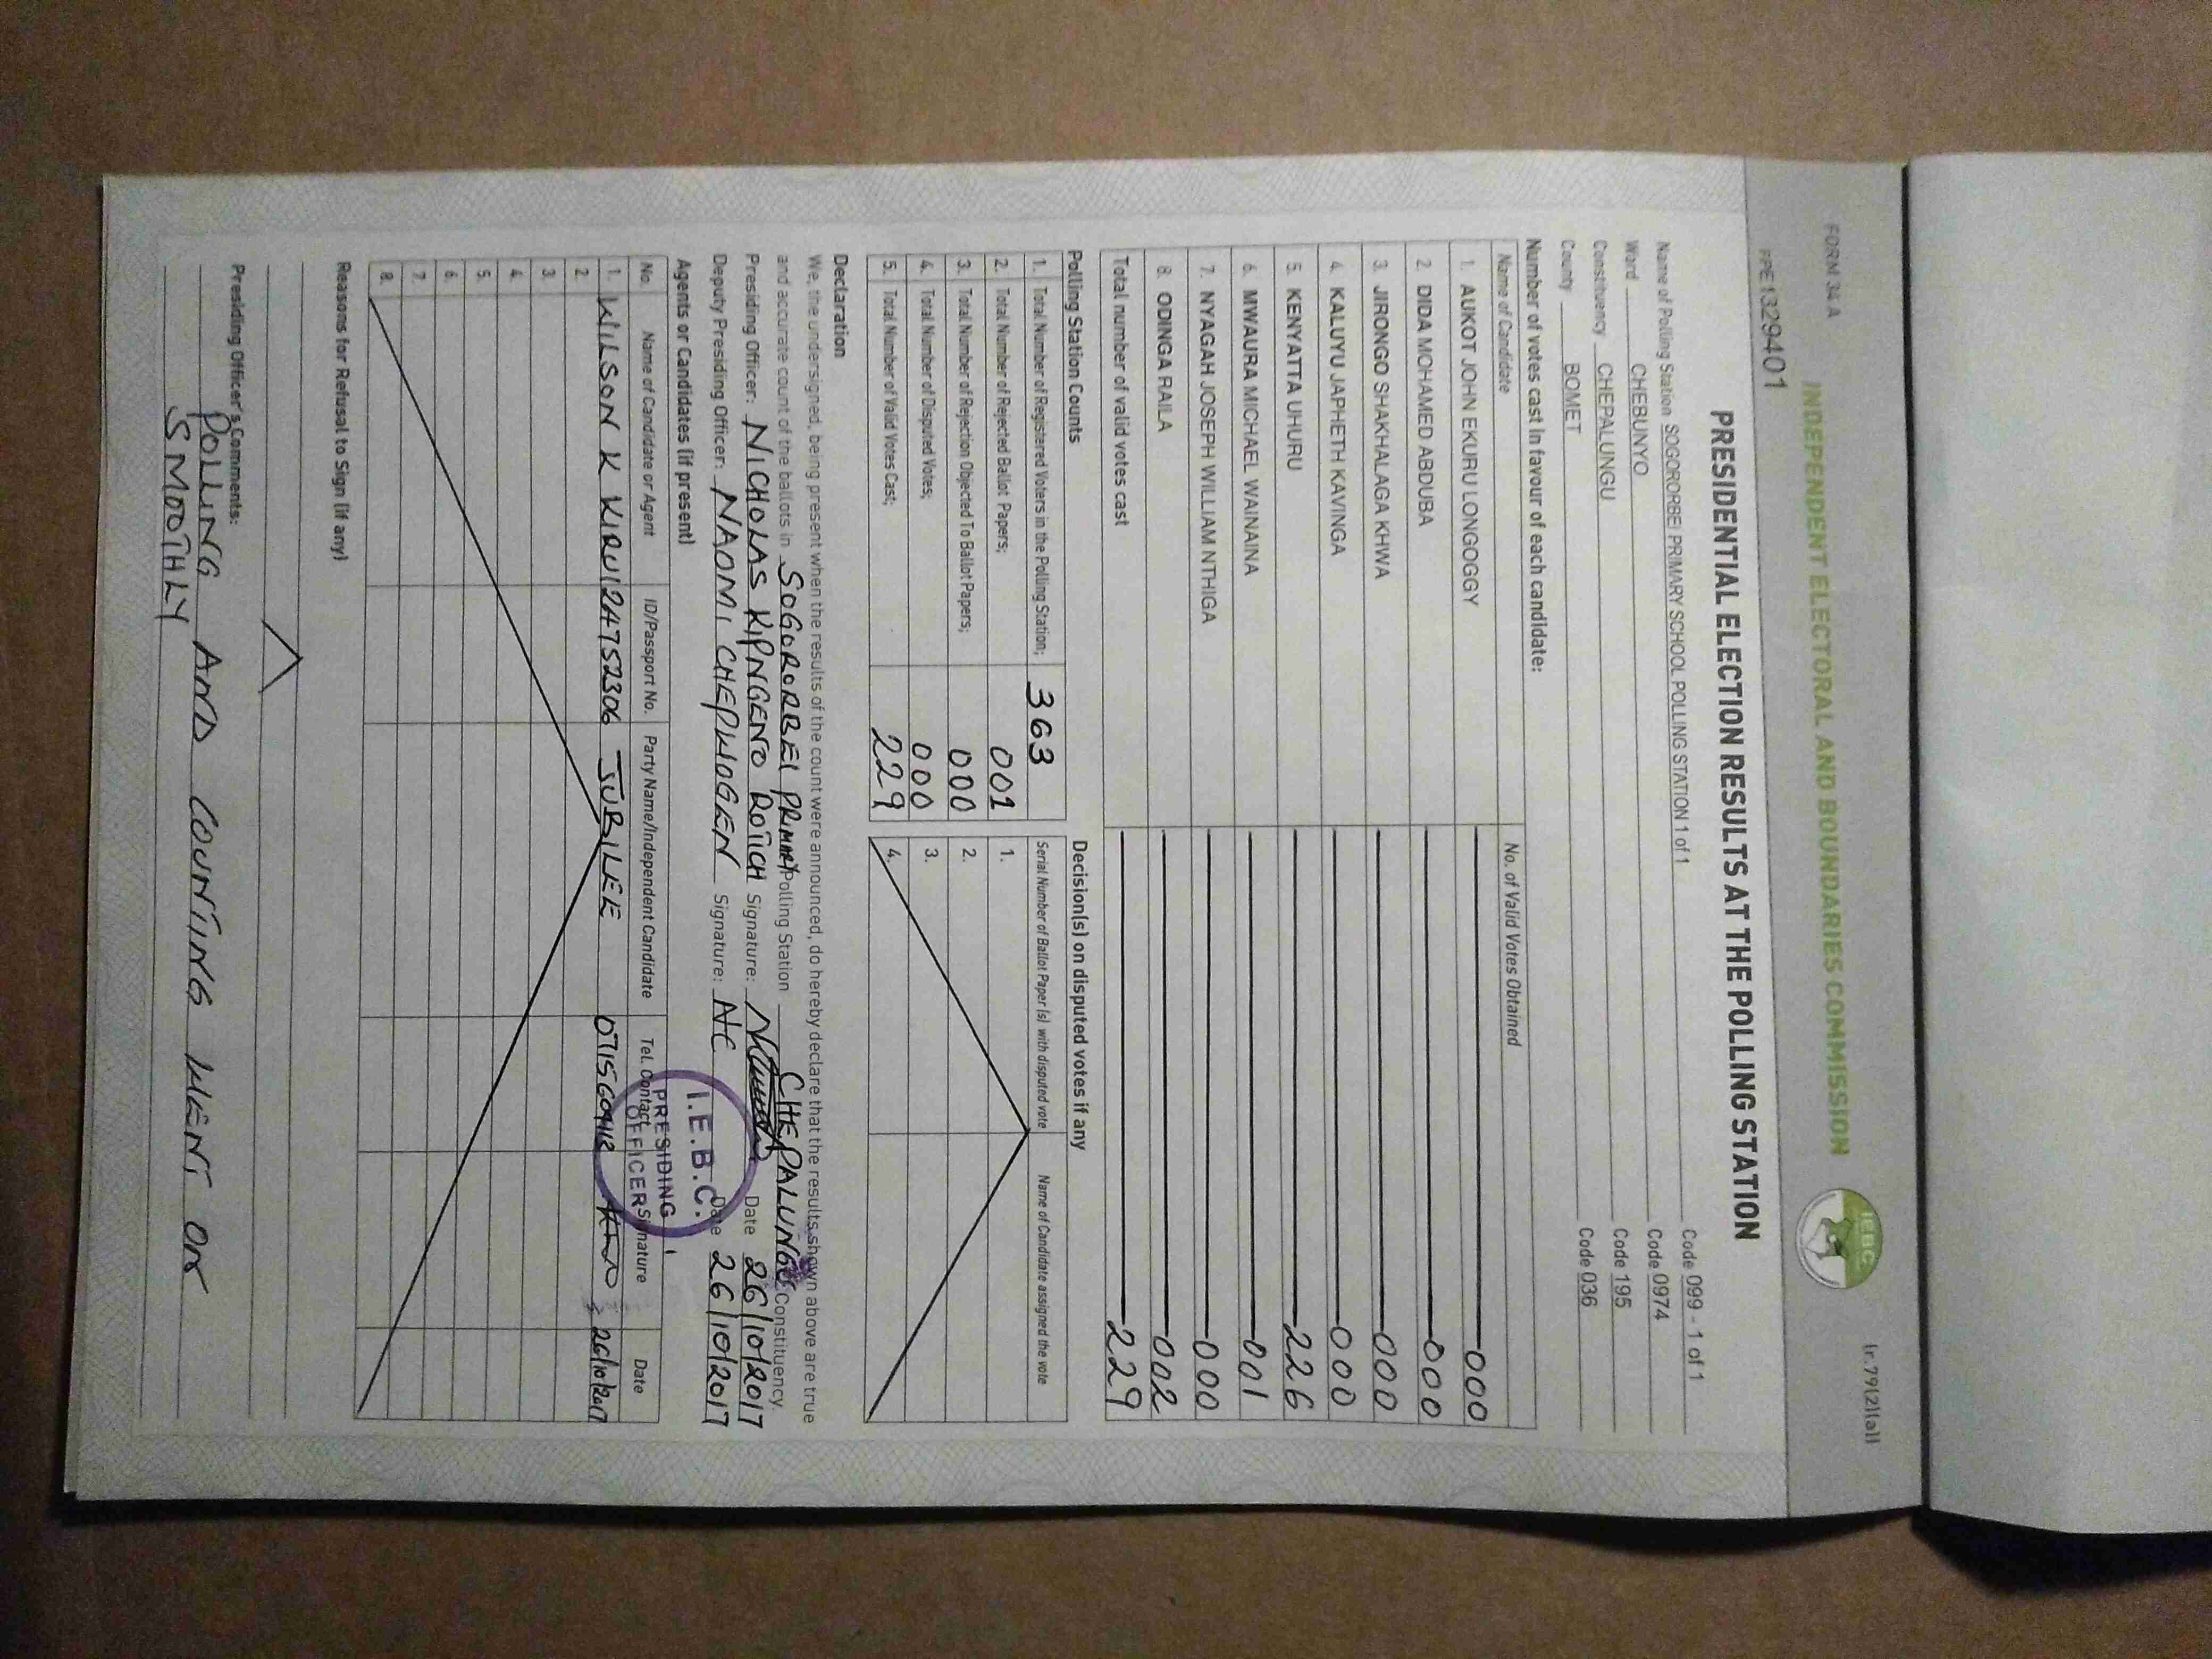 FORM 34A
(r.79(2)(a))
INDEPENDENT ELECTORAL AND BOUNDARIES COMMISSION
IEBC
PPE1329401
PRESIDENTIAL ELECTION RESULTS AT THE POLLING STATION
Name of Polling Station SOGORORBEI PRIMARY SCHOOL POLLING STATION 1 of 1 Code 099 - 1 of 1
Ward CHEBUNYO Code 0974
Constituency CHEPALUNGU Code 195
County BOMET Code 036
Number of votes cast in favour of each candidate:
Name of Candidate No. of Valid Votes Obtained
1. AUKOT JOHN EKURU LONGOGGY 000
2. DIDA MOHAMED ABDUBA 000
3. JIRONGO SHAKHALAGA KHWA 000
4. KALUYU JAPHETH KAVINGA 000
5. KENYATTA UHURU 226
6. MWAURA MICHAEL WAINAINA 001
7. NYAGAH JOSEPH WILLIAM NTHIGA 000
8. ODINGA RAILA 002
Total number of valid votes cast 229
Polling Station Counts
1. Total Number of Registered Voters in the Polling Station; 363
2. Total Number of Rejected Ballot Papers; 001
3. Total Number of Rejection Objected To Ballot Papers; 000
4. Total Number of Disputed Votes; 000
5. Total Number of Valid Votes Cast; 229
Decision(s) on disputed votes if any
Serial Number of Ballot Paper (s) with disputed vote Name of Candidate assigned the vote
1.
2.
3.
4.
Declaration
We, the undersigned, being present when the results of the count were announced, do hereby declare that the results shown above are true
and accurate count of the ballots in SOGORORBEI PRIMARY Polling Station CHEPALUNGU Constituency.
Presiding Officer: NICHOLAS KIPNGENO ROTICH Signature: Date 26/10/2017
Deputy Presiding Officer: NAOMI CHEPKIOGEN Signature: NC Date 26/10/2017
I.E.B.C.
PRESIDING
OFFICER
Agents or Candidates (if present)
No. Name of Candidate or Agent ID/Passport No. Party Name/Independent Candidate Tel. Contact Signature Date
1. WILSON K KIRUI 24752306 JUBILEE 26/10/2017
2.
3.
4.
5.
6.
7.
8.
Reasons for Refusal to Sign (if any)
Presiding Officer's Comments:
POLLING AND COUNTING WENT ON
SMOOTHLY